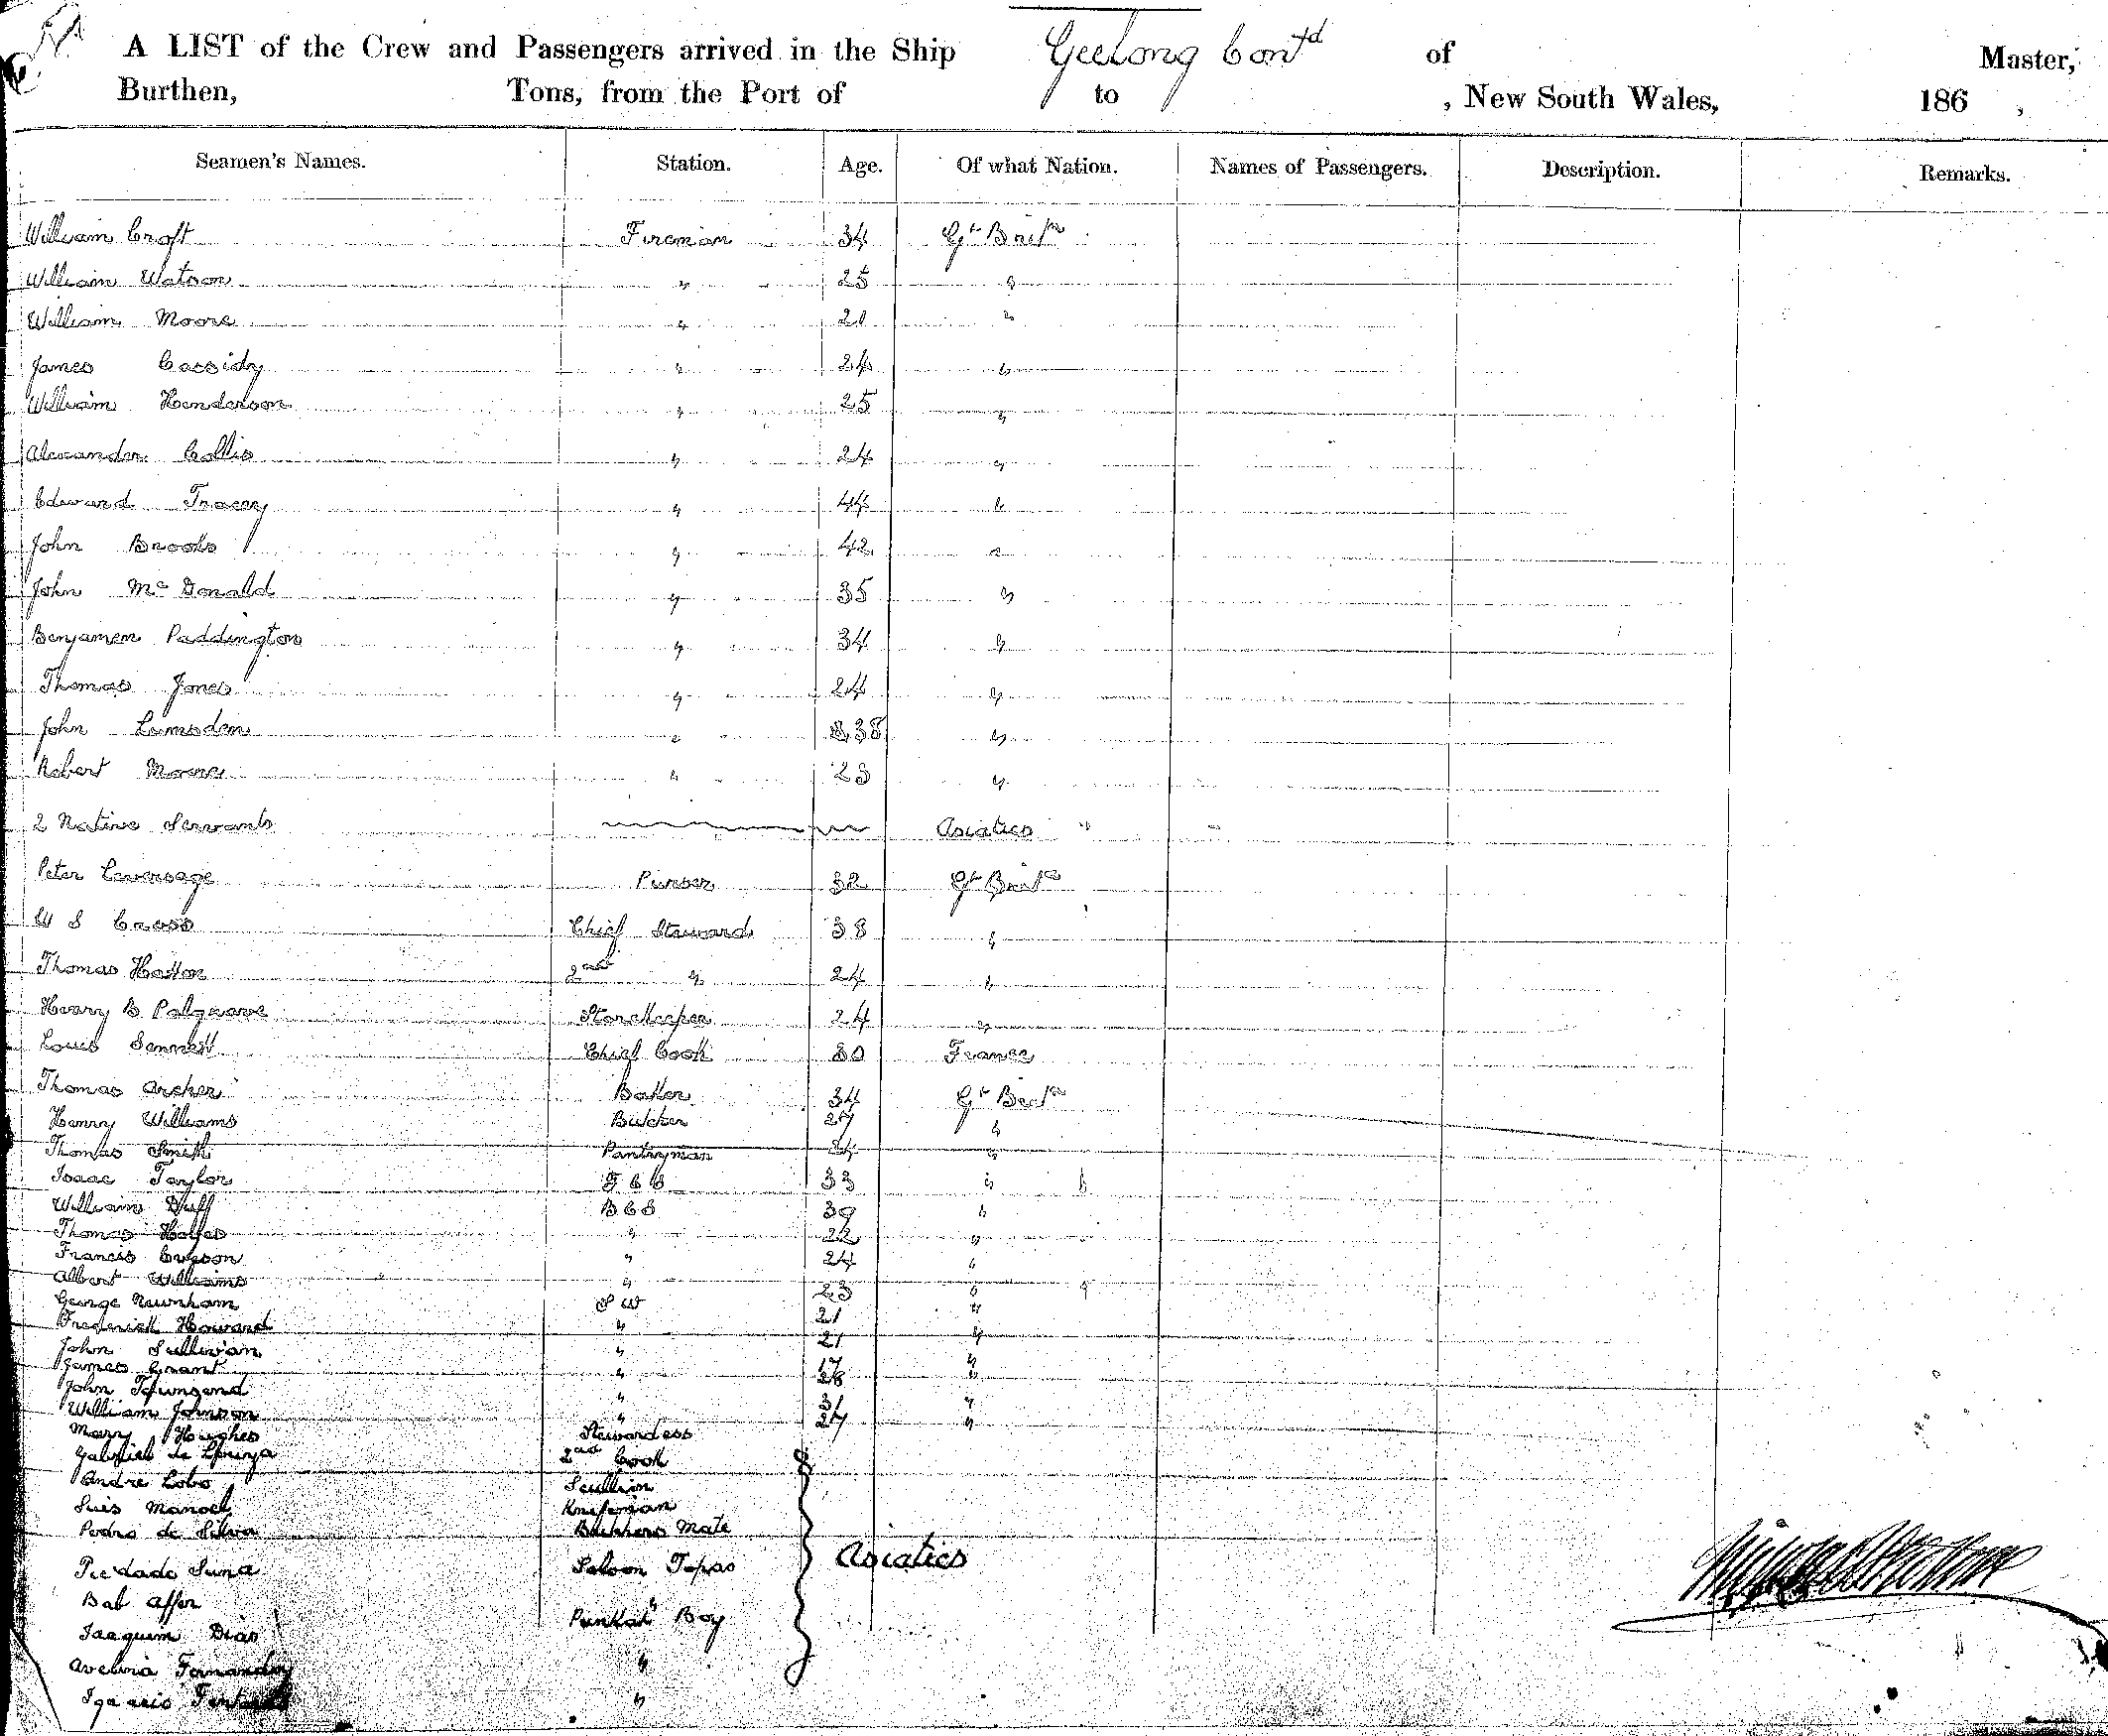 A LIST of the Crew and Passengers arrived in the Ship Geelong Cont^d of Master,
Burthen, Tons, from the Port of to , New South Wales, 186 ,
Seamen's Names. Station. Age. Of what Nation. Names of Passengers. Description. Remarks.
William Croft Fireman 34 Gt Brit^n
William Watson " 25 "
William Moore " 21 "
James Cassidy " 24 "
William Henderson " 25 "
Alexander Collis " 24 "
Edward Tracey " 44 "
John Brooks " 42 "
John McDonald " 35 "
Benjamen Paddington " 34 "
Thomas Jones " 24 "
John Lumsden " 38 "
Robert Moore " 23 "
2 Native Servants Asiatics
Peter Liversage Purser 32 Gt Brit^n
W S Cross Chief Steward 38 "
Thomas Hatton 2nd " 24 "
Henry B Palgrave Storekeeper 24 "
Louis Sennett Chief Cook 30 France
Thomas Archer Baker 34 Gt Brit^n
Henry Williams Butcher 27 "
Thomas Smith Pantryman 24 "
Isaac Taylor 33 "
William Duff B C S 39 "
Thomas " 22 "
Francis " 24 "
Albert Williams " 23 "
George Newnham S W 21 "
Frederick Howard " 21 "
John Sullivan " 17 "
James Grant " 26 "
John Townsend " 31 "
William Johnson " 27 "
Mary Hughes Stewardess
Gabriel de 2nd Cook
Andre Lobo Scullion
Luis Manoel Knifeman
Pedro de Silva Butchers Mate
Piedade Saloon Topas Asiatics
Bab Affer
Jaaquim Dias Punkah Boy
Avelina Fernandez "
Ignacio "